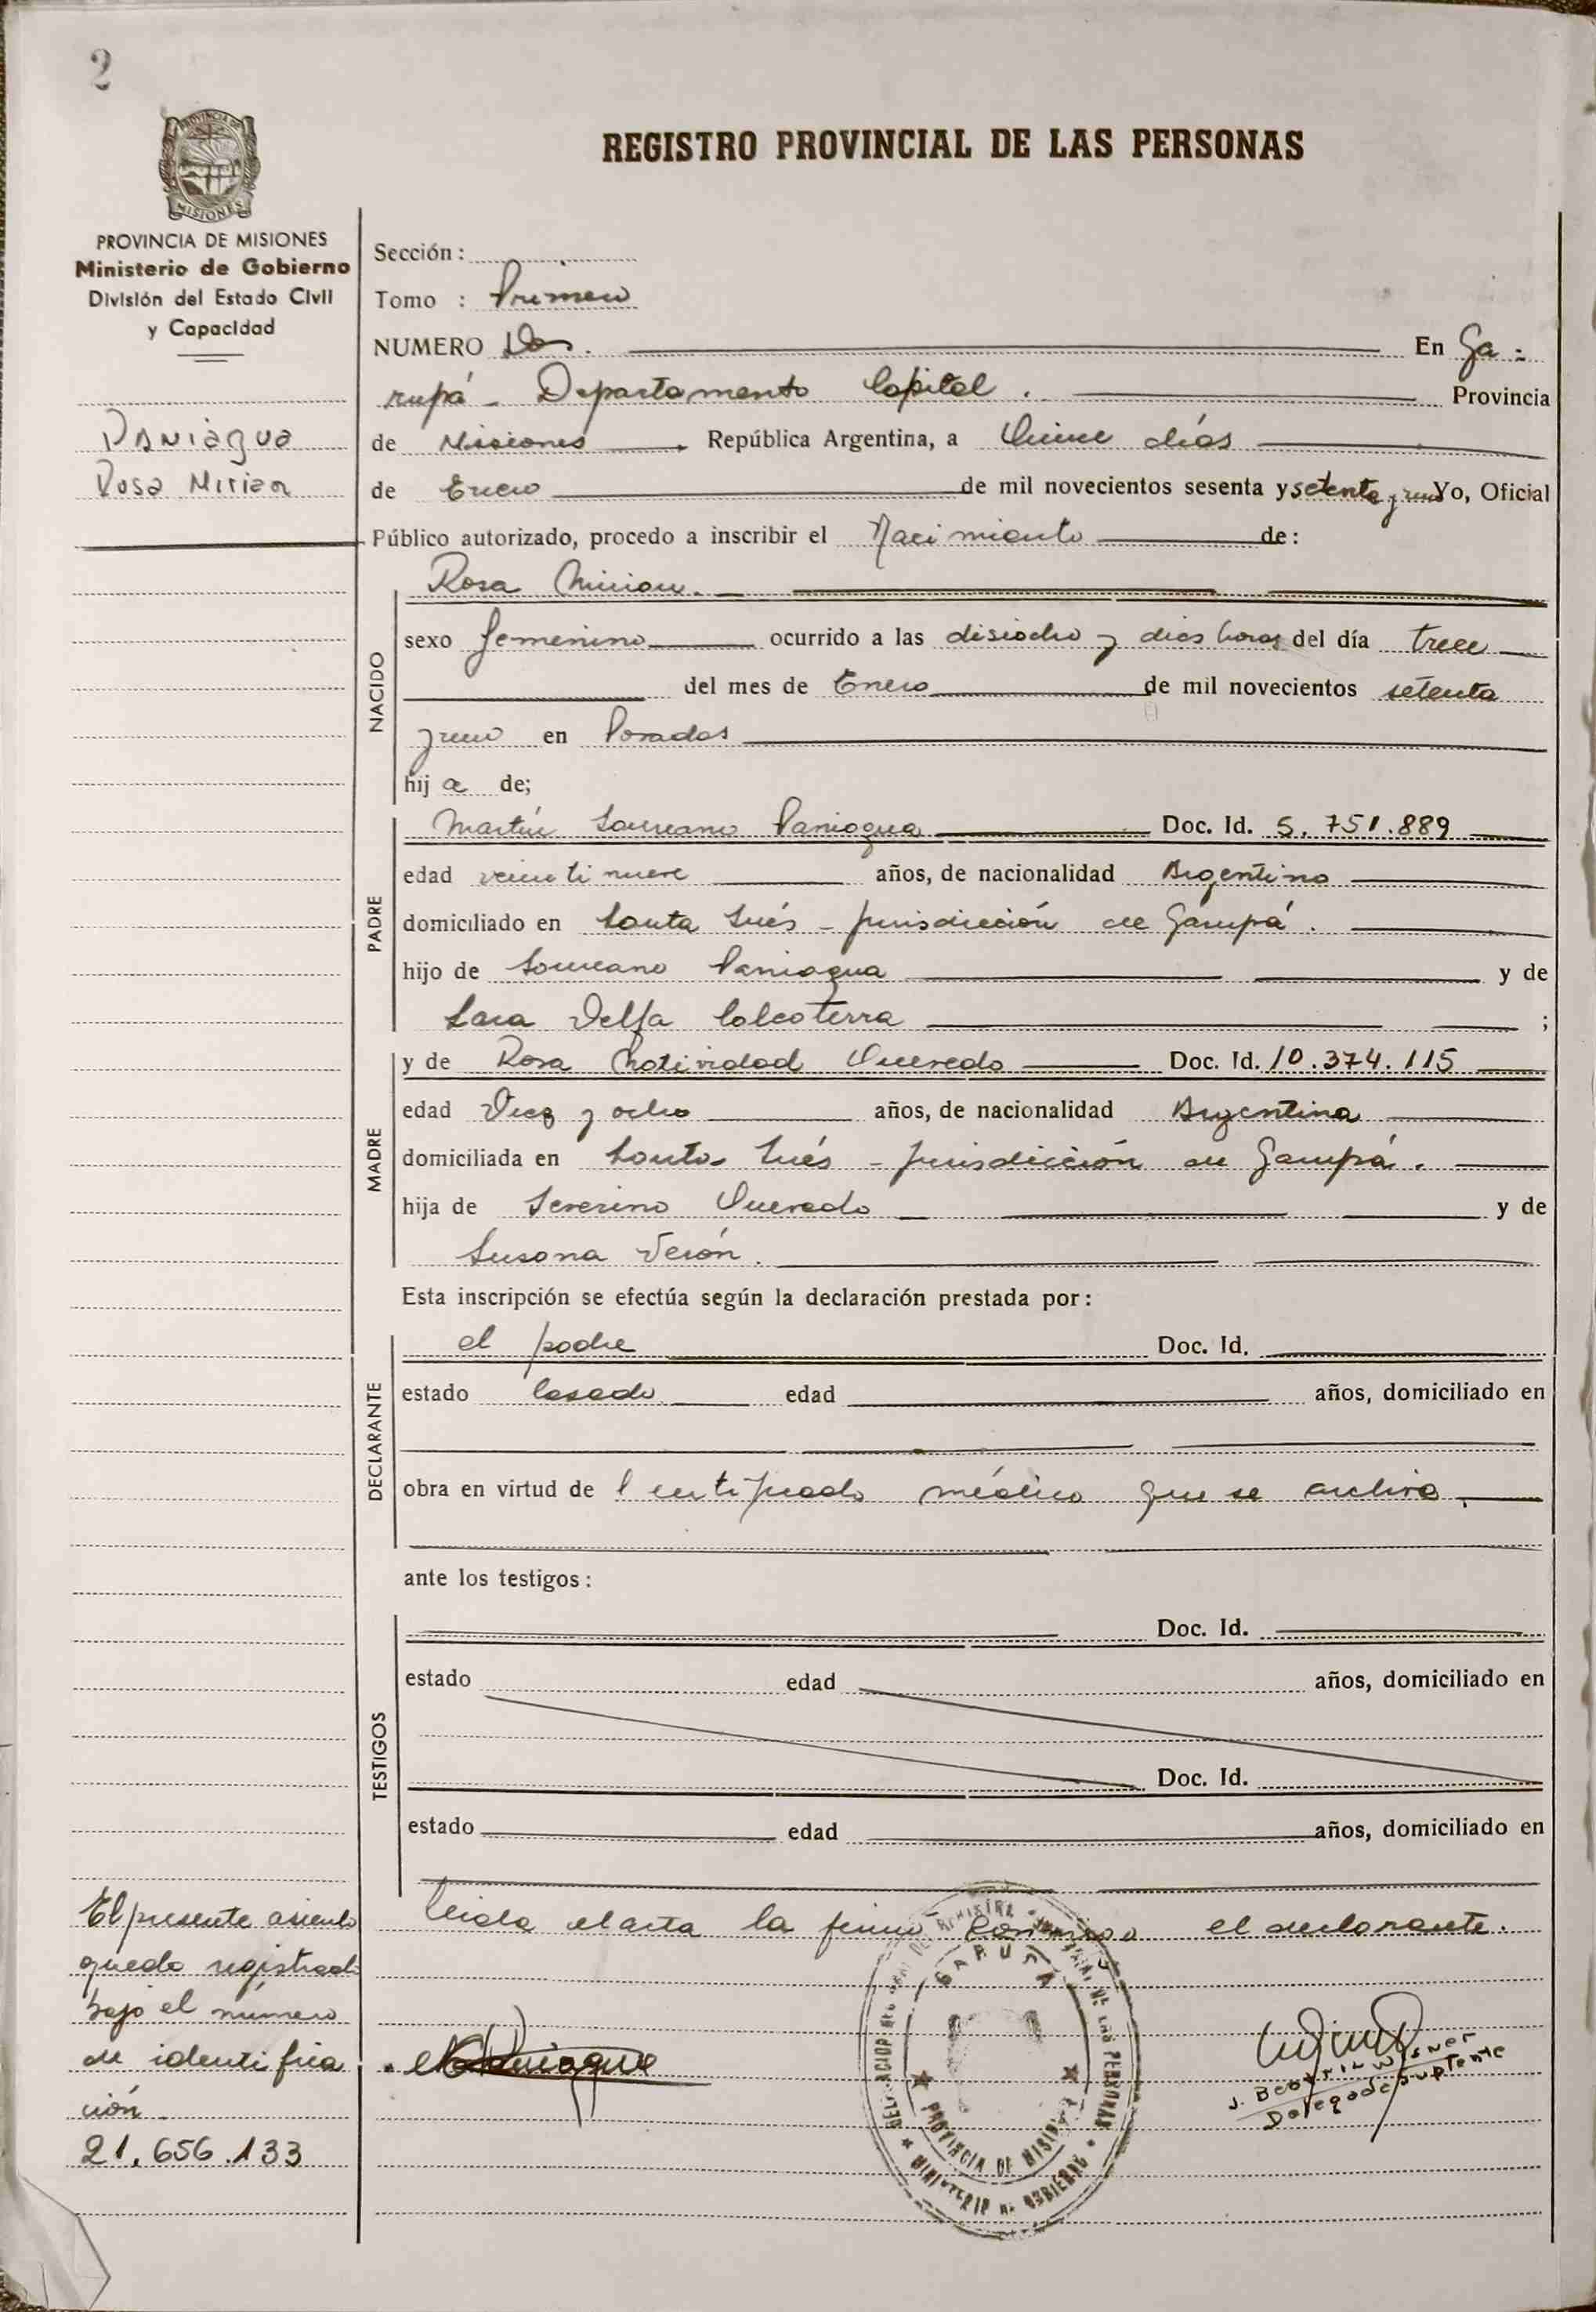 2
PROVINCIA DE MISIONES
REGISTRO PROVINCIAL DE LAS PERSONAS
PROVINCIA DE MISIONES
Ministerio de Gobierno
División del Estado Civil
y Capacidad
Paniagua
Rosa Mirian
Sección:
Tomo : Primero
NUMERO Dos. En Ga-
rupá - Departamento Capital. Provincia
de Misiones República Argentina, a Quince días
de Enero de mil novecientos sesenta y setenta y uno Yo, Oficial
Público autorizado, procedo a inscribir el Nacimiento de:
NACIDO
Rosa Mirian.
sexo femenino ocurrido a las disiocho y dies horas del día trece
del mes de Enero de mil novecientos setenta
y uno en Posadas
hij a de;
PADRE
Martín Laureano Paniagua Doc. Id. 5.751.889
edad veintinueve años, de nacionalidad Argentino
domiciliado en Santa Inés - jurisdicción de Garupá.
hijo de Laureano Paniagua y de
Sara Delfa Calcaterra ;
MADRE
y de Rosa Natividad Quevedo Doc. Id. 10.374.115
edad Diez y ocho años, de nacionalidad Argentina
domiciliada en Santa Inés - jurisdicción de Garupá.
hija de Severino Quevedo y de
Susana Verón.
Esta inscripción se efectúa según la declaración prestada por:
DECLARANTE
el padre Doc. Id.
estado Casado edad años, domiciliado en
obra en virtud de Certificado médico que se archiva.
ante los testigos:
TESTIGOS
Doc. Id.
estado edad años, domiciliado en
Doc. Id.
estado edad años, domiciliado en
Leida el acta la firma conmigo el declarante.
El presente asiento
queda registrado
bajo el número
de identifica
ción
21.656.133
GARUPA
PROVINCIA DE MISIONES
MINISTERIO DE GOBIERNO
J. Beatriz Wisner
Delegada Suplente